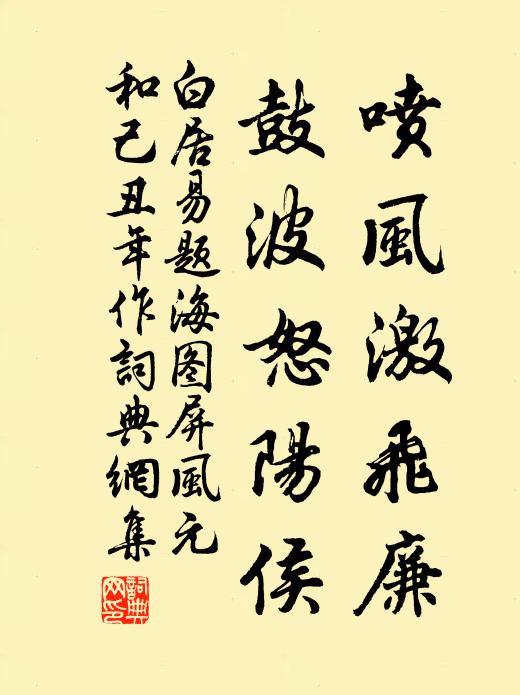 喷風激飛廉
鼓波怒陽侯
白居易题海图屏風元
和己丑年作詞典網集
詞典網印